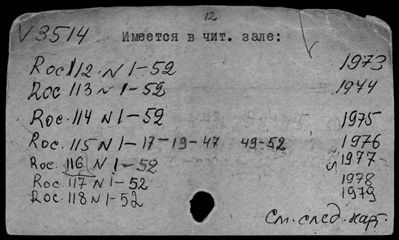 12
V3514 Имеется в чит. зале:
Roc 112 N 1-52 1973
Roc 113 N 1-52 1944
Roc. 114 N 1-52 1975
Roc. 115 N 1-17-19-47 49-52 1976
Roc. 116 N 1-52 1977
Roc 117 N 1-52 1978
Roc. 118 N 1-52 1979
См. след. карт.